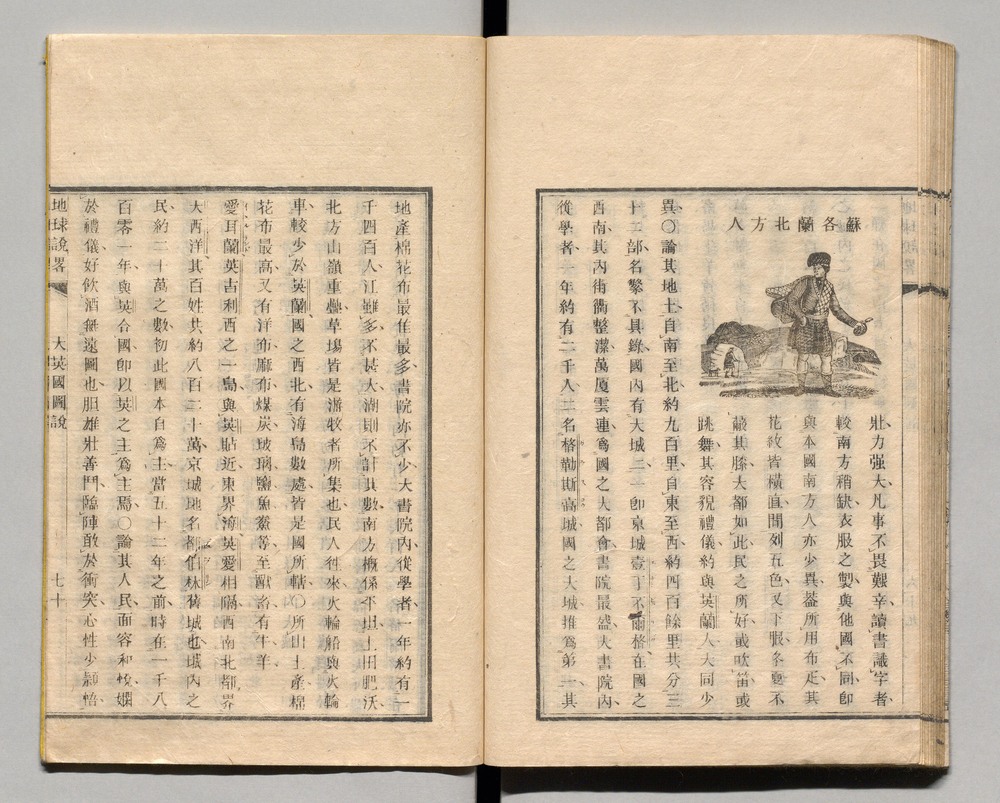 蘇各蘭北方人
壯力强大凡事不畏艱辛讀書識字者
較南方稍缺衣服之製與他國不同卽
與本國南方人亦少異蓋所用布疋其
花紋皆橫直間列五色又下服冬夏不
蔽其膝大都如此民之所好或吹笛或
跳舞其容貌禮儀約與英蘭人大同少
異〇論其地土自南至北約九百里自東至西約四百餘里共分三
十二部名繁不具錄國內有大城二一卽京城壹丁不爾格在國之
西南其內街衢整潔萬厦雲連爲國之大都會書院最盛大書院內
從學者一年約有二千人二名格勒斯哥城國之大城推爲第一其
地產棉花布最佳最多書院亦不少大書院內從學者一年約有一
千四百人江雖多不甚大湖則不計其數南方槪係平坦土田肥沃
北方山嶺重疊草塲皆是游牧者所集也民人往來火輪船與火輪
車較少於英蘭國之西北有海島數處皆是國所轄〇所出土產棉
花布最高又有洋布麻布煤炭玻璃鹽魚鯗等至獸畜有牛羊
愛耳蘭英吉利西之一島與英貼近東界海英愛相隔西南北都界
大西洋其百姓共約八百二十萬京城地名都伯林舊城也城內之
民約二十萬之數初此國本自爲主當五十二年之前時在一千八
百零一年與英合國卽以英之主爲主焉〇論其人民面容和悅嫻
於禮儀好飲酒無遠圖也胆雄壯善鬥臨陣敢於衝突心性少穎悟
地球說畧 大英國圖說 七十